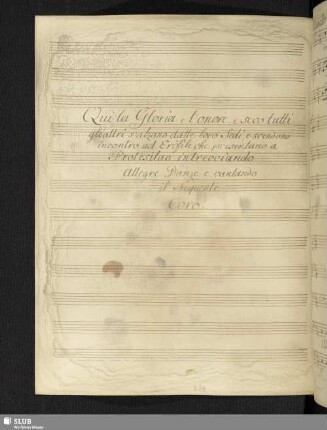 Qui la Gloria e l'onore e seco tutti
gli altri s'alzano dalle loro Sedi e scendono
incontro ad Erifile che presentano a
Protesilao intrecciando
Allegre Danze e cantando
il Seguente
Coro.
SLUB
Wir führen Wissen.